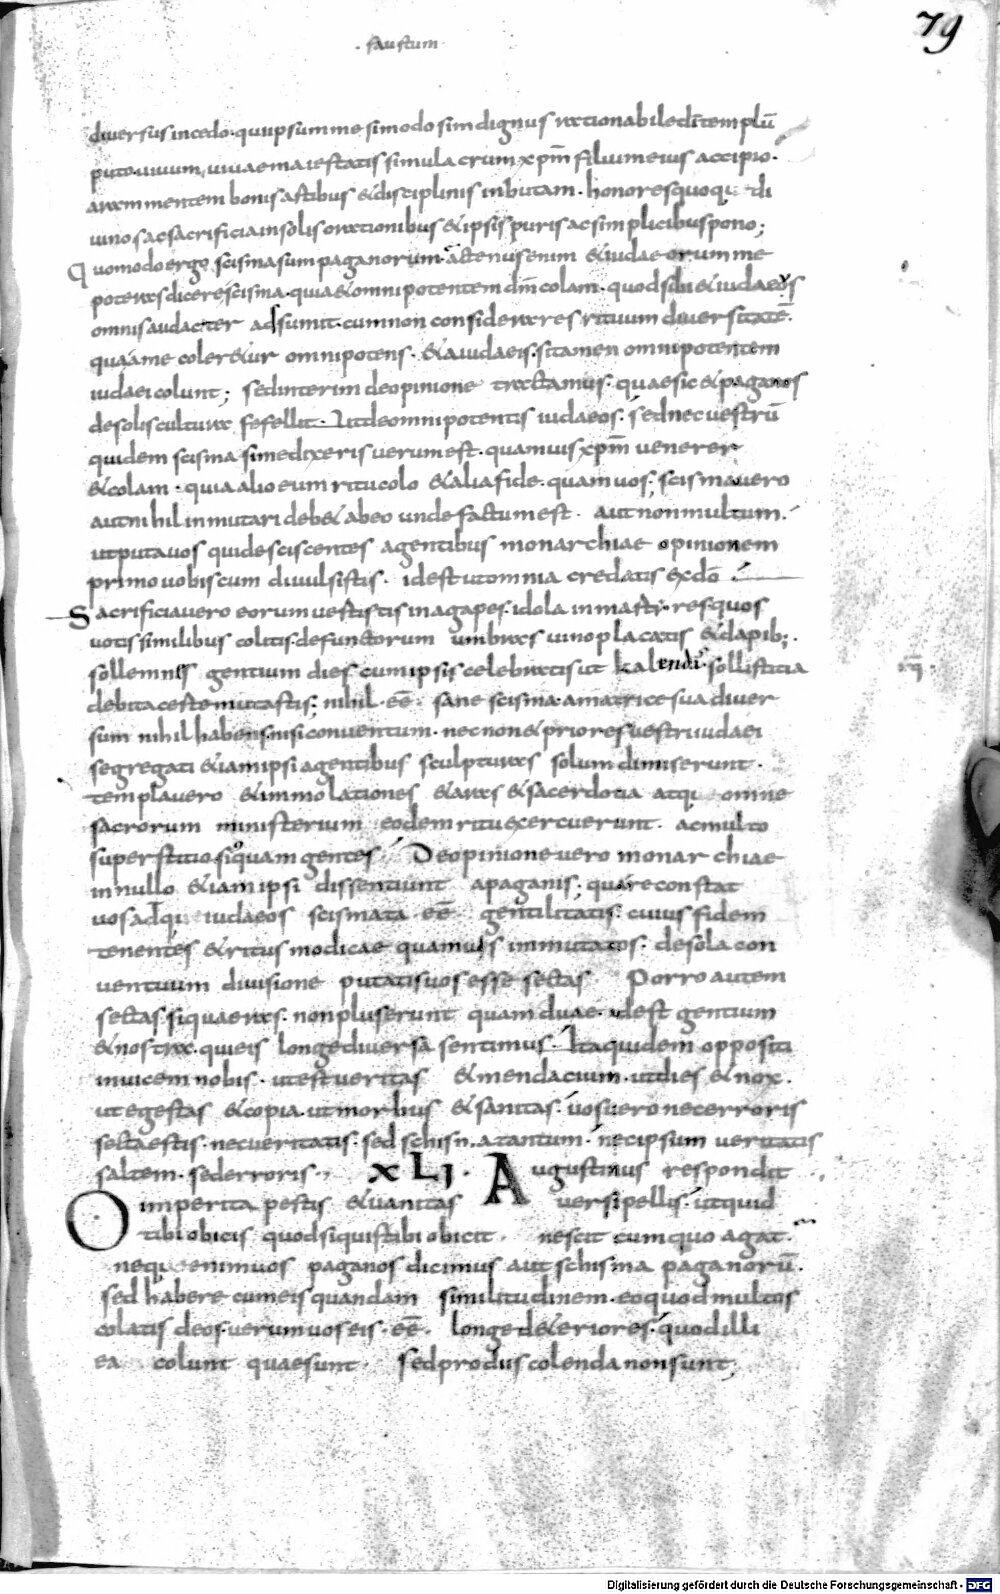 · faustum
79
diversus incedo· quiipsum me simodo sim dignus rationabile dī templū
puto· vivum, vivae maiestatis simulacrum xpm̄ filium eius accipio·
aram mentem bonis artibus & disciplinis inbutam· honores quoqu di
vinos ac sacrificia in solis orationibus & ipsis puris ac simplicibus pono;
Quomodo ergo scisma sum paganorum· actenus enim & iudaeorum me
poteras dicere scisma· quia & omnipotentem dm̄ colam· quod sibi & iudaeus
omnis audacter adsumit· cum non considerares rituum diversitatē·
qua a me coler&ur omnipotens· & a iudaeis· si tamen omnipotentem
iudaei colunt; sed interim de opinione tractamus· quae sic & paganos
de solis cultura fefellit· ut de omnipotentis iudaeos· sed nec vestrū
quidem scisma si me dixeris verum est· quamvis xpm̄ venerer
& colam· quia alio eum ritu colo & alia fide· quam vos; scisma vero
aut nihil inmutari deb& ab eo unde factum est· aut non multum·
ut puta vos qui desciscentes a gentibus monarchiae opinionem
primo vobiscum divulsistis· id est ut omnia credatis ex dō
Sacrificia vero eorum vestistis in agapes· idola in martires quos
votis similibus colitis· defunctorum umbras vino placatis & dapib;·
sollemnes gentium dies cum ipsis celebratis ut kalendas sollistitia
de vita certe mutastis; nihil· eē· sane scisma· a matrice sua diver
sum nihil habens nisi conventum· nec non & priores vestri iudaei
segregati &iam ipsi a gentibus sculpturas solum dimiserunt·
templa vero & immolationes & aras & sacerdotia atqu omne
sacrorum ministerium eodem ritu exercuerunt· ac multo
superstitiosi quam gentes De opinione vero monarchiae
in nullo &iam ipsi dissentiunt a paganis; quare constat
vos adqu iudaeos scismata eē gentilitatis· cuius fidem
tenentes & ritus modicae quamvis immutatos· de sola con
ventuum divisione putatis vos esse sectas Porro autem
sectas si quaeras· non plus erunt quam duae· idest gentium
& nostra· qui eis longe diversa sentimus· Ita quidem oppositi
invicem nobis· ut est veritas & mendacium· ut dies & nox·
ut egestas & copia· ut morbus & sanitas· vos vero nec erroris
secta estis· nec veritatis· sed schisma tantum· nec ipsum veritatis
saltem· sed erroris· XLI· Augustinus respondit
O imperita pestis & vanitas versipellis· ut quid
tibi obicis quod si quis tibi obicit nescit cum quo agat·
nequ enim vos paganos dicimus aut schisma paganorū·
sed habere cum eis quandam similitudinem· eo quod multos
colatis deos· verum vos eis· eē· longe d&eriores· quod illi
ea colunt quae sunt· sed pro diis colenda non sunt;
Digitalisierung gefördert durch die Deutsche Forschungsgemeinschaft - DFG